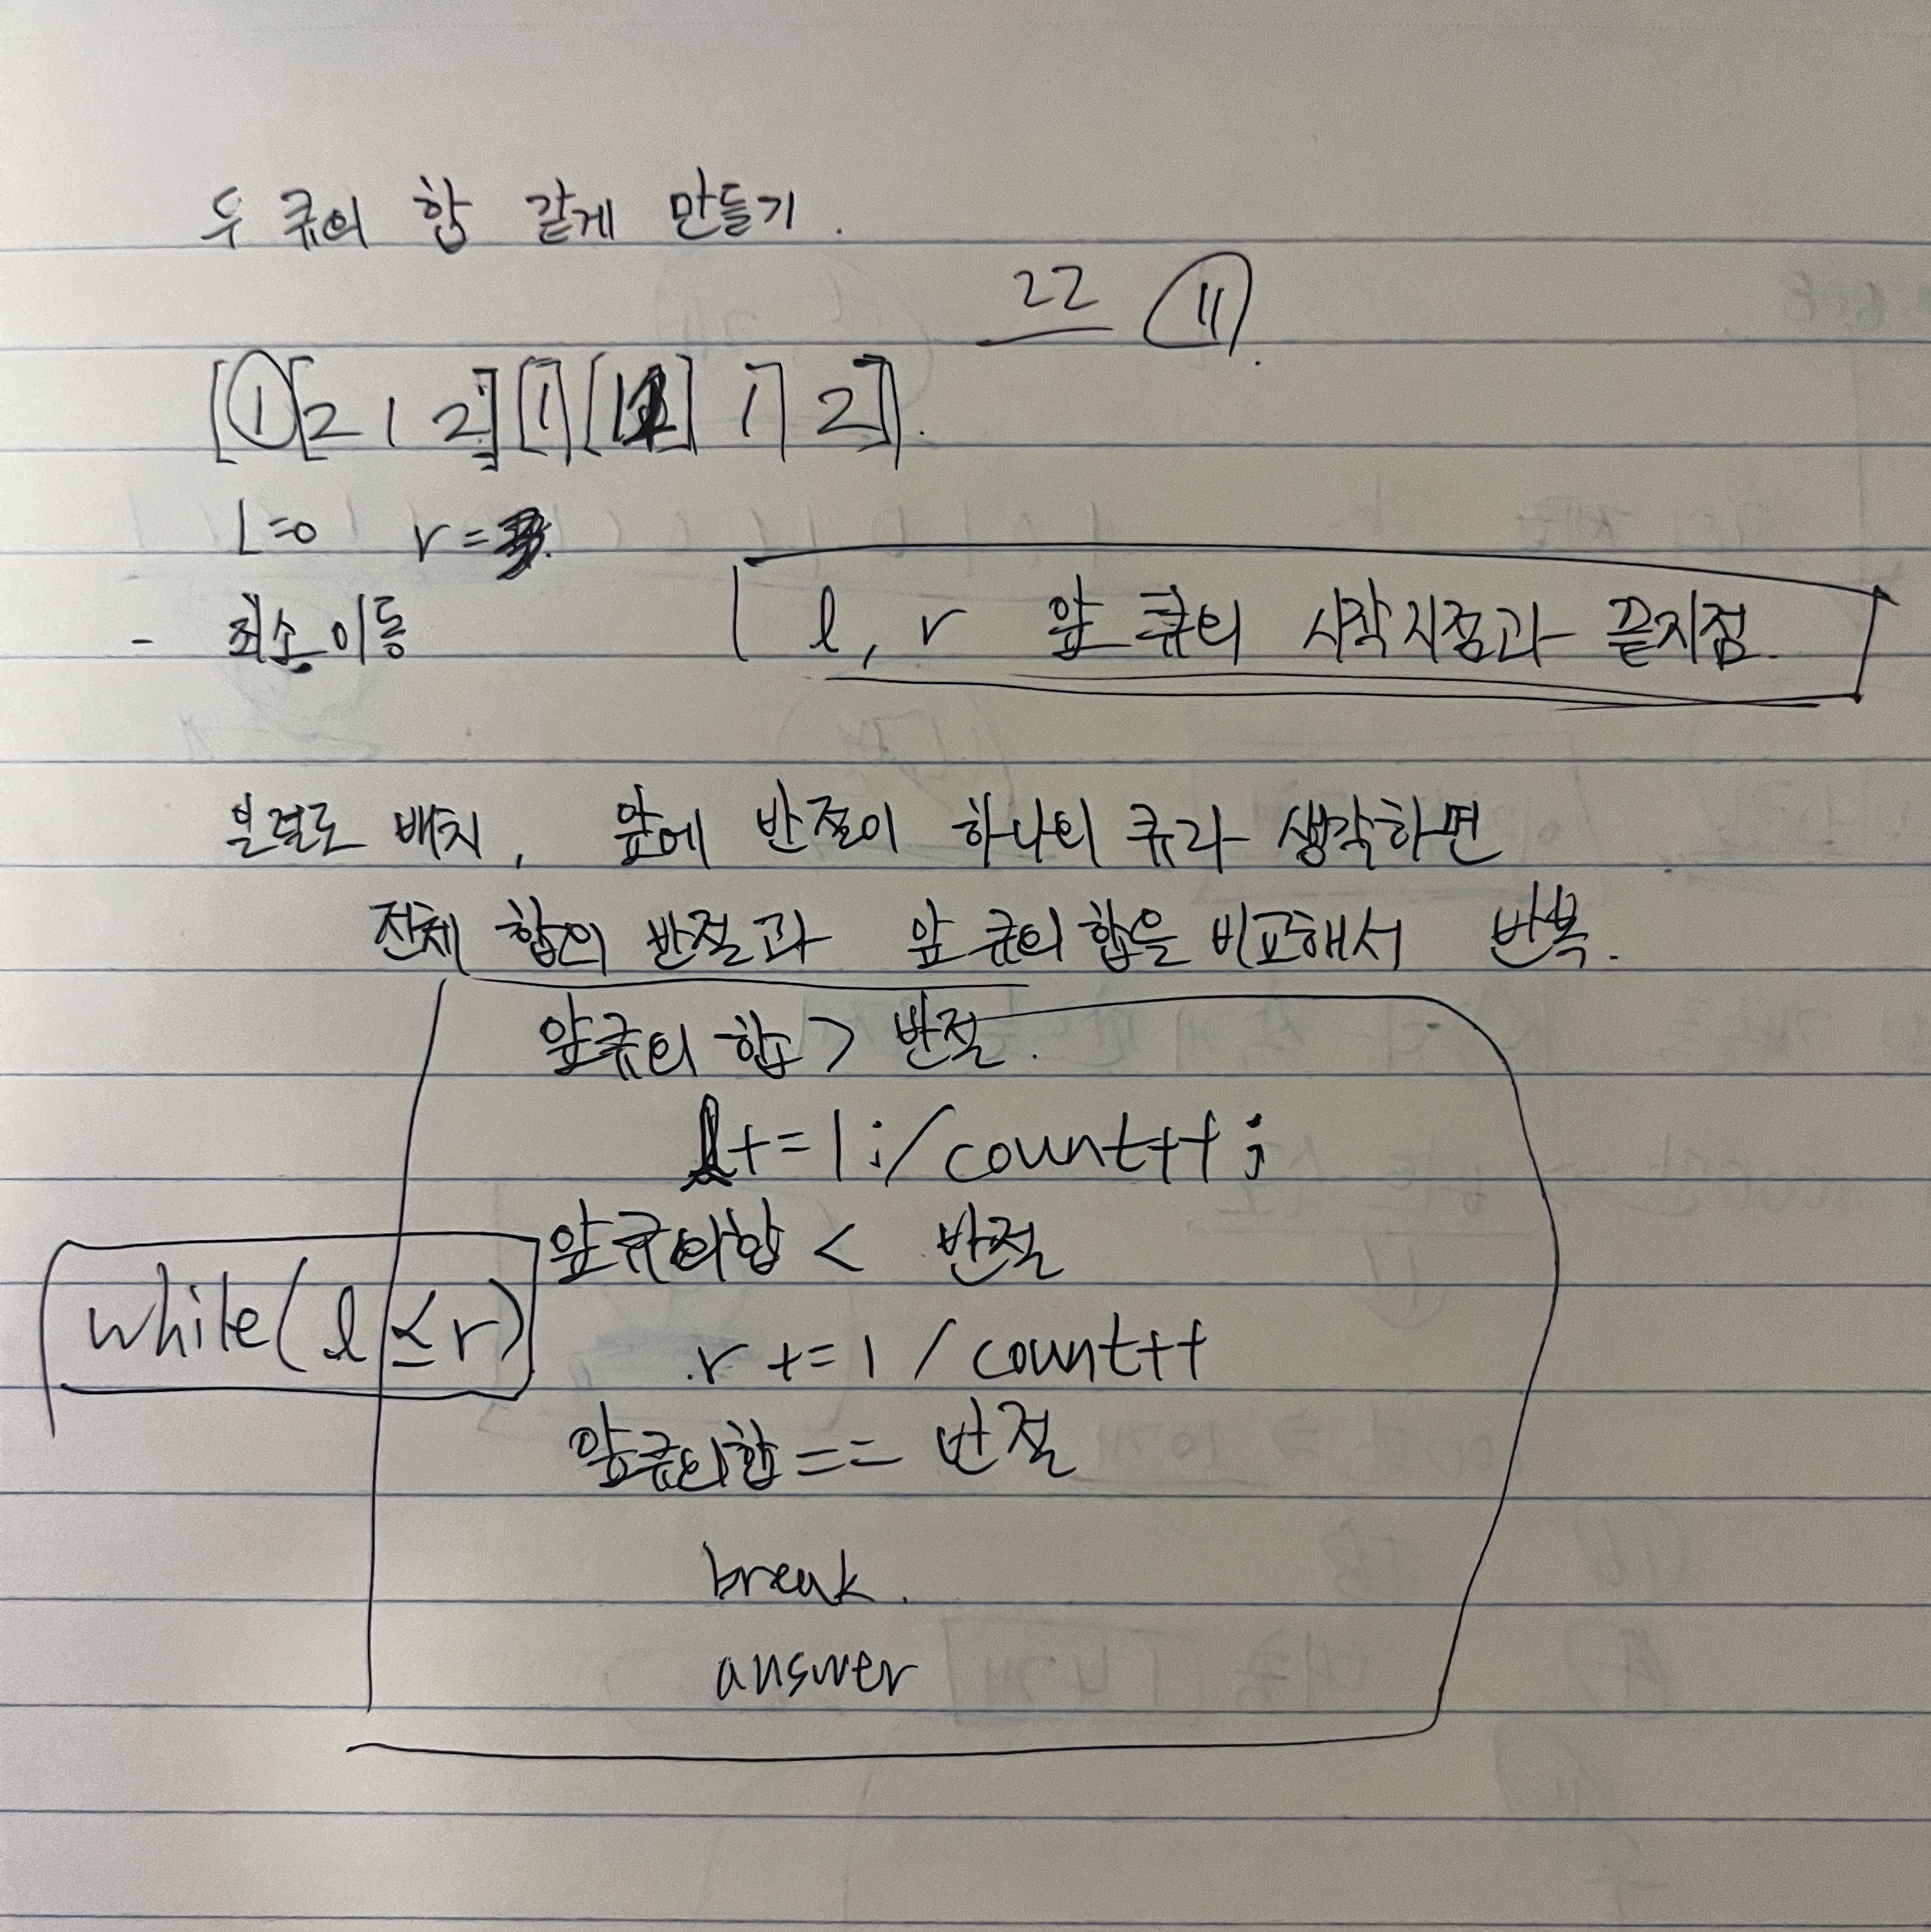 두 큐의 합 같게 만들기.
22 11.
[1[2 1 2][1][1 1] 2].
L=0 r=
- 최소 이동
l, r 앞 큐의 시작지점과 끝지점.
일렬로 배치, 앞에 반절이 하나의 큐라 생각하면
전체 합의 반절과 앞 큐의 합을 비교해서 반복.
앞큐의 합 > 반절.
l+=1;/count++;
앞큐의합 < 반절
while(l≤r)
r+=1 / count++
앞큐의합 == 반절
break.
answer